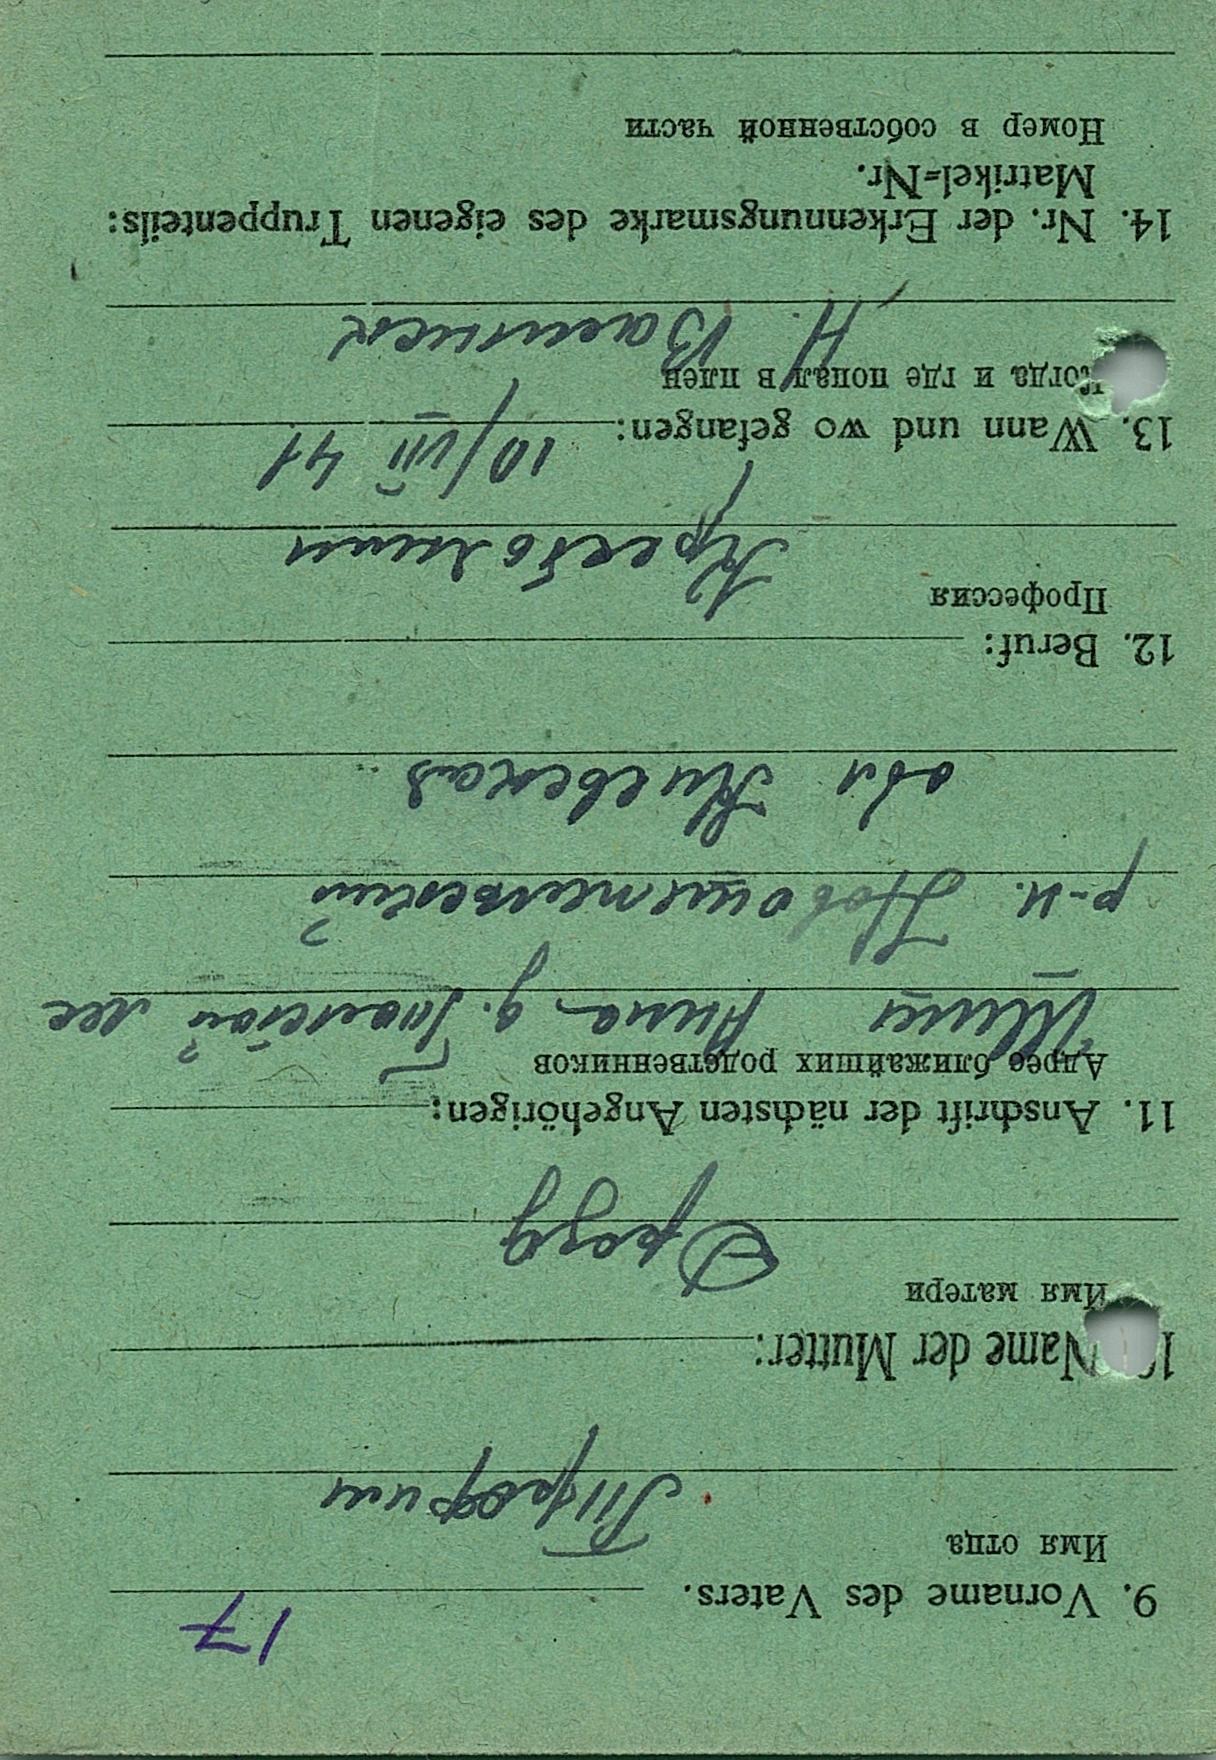 17
9. Vorname des Vaters.
Имя отца
Трофим
Name der Mutter:
Имя матери
Дрозд
11. Anschrift der nächsten Angehörigen:
Адрес ближайших родственников
Анна д.
р-н.
обл Киевская
12. Beruf:
Профессия
13. Wann und wo gefangen:
10/VII 41
Когда и где попал в плен
Н.
14. Nr. der Erkennungsmarke des eigenen Truppenteils:
Matrikel=Nr.
Номер в собственной части